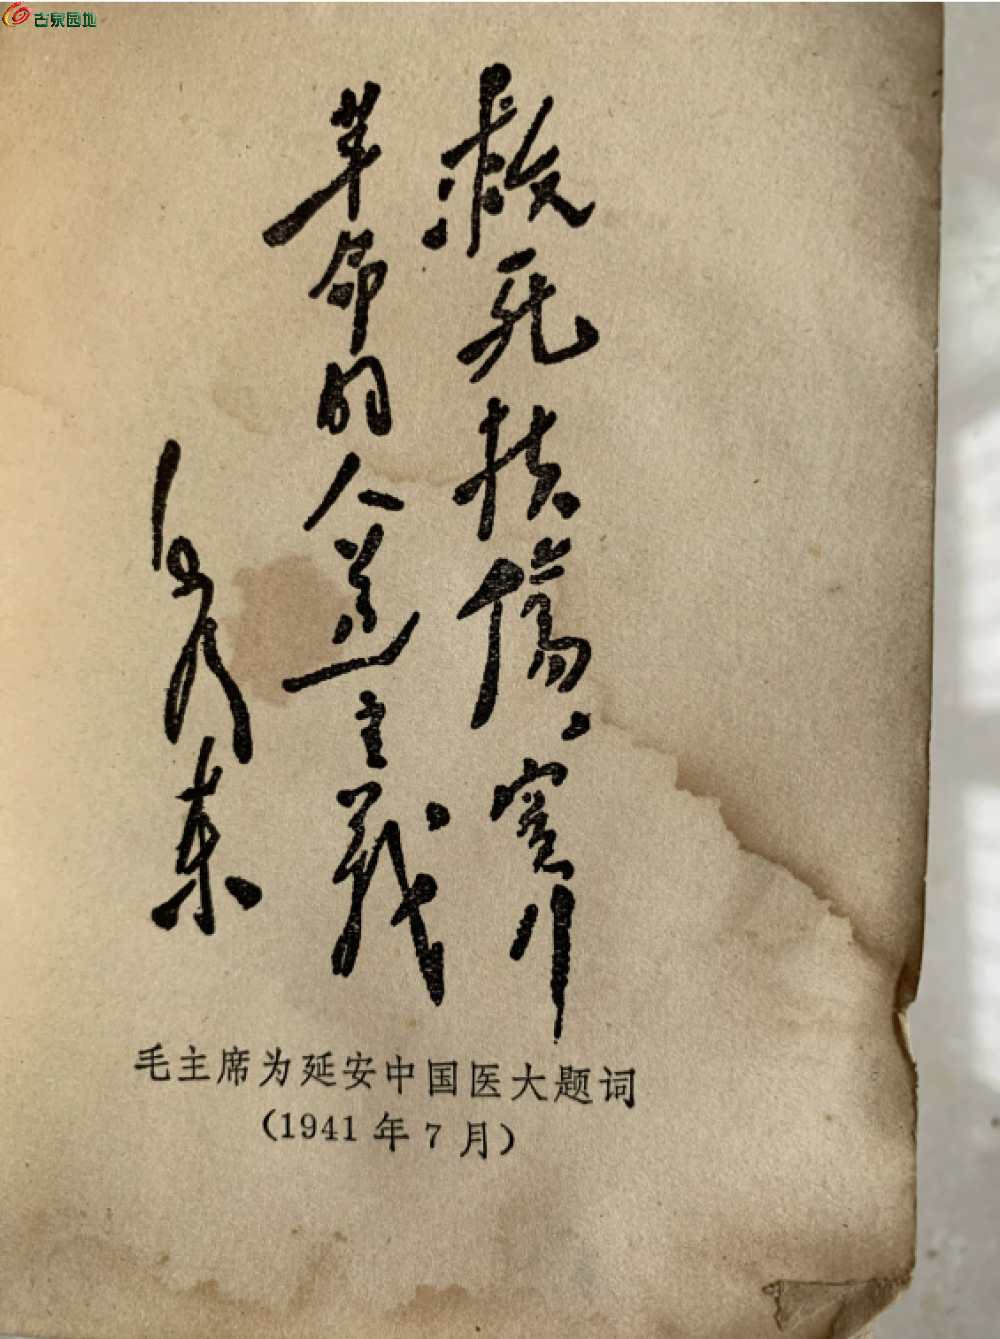 古泉园地
救死扶傷、實行
革命的人道主義
毛泽东
毛主席为延安中国医大题词
(1941年7月)